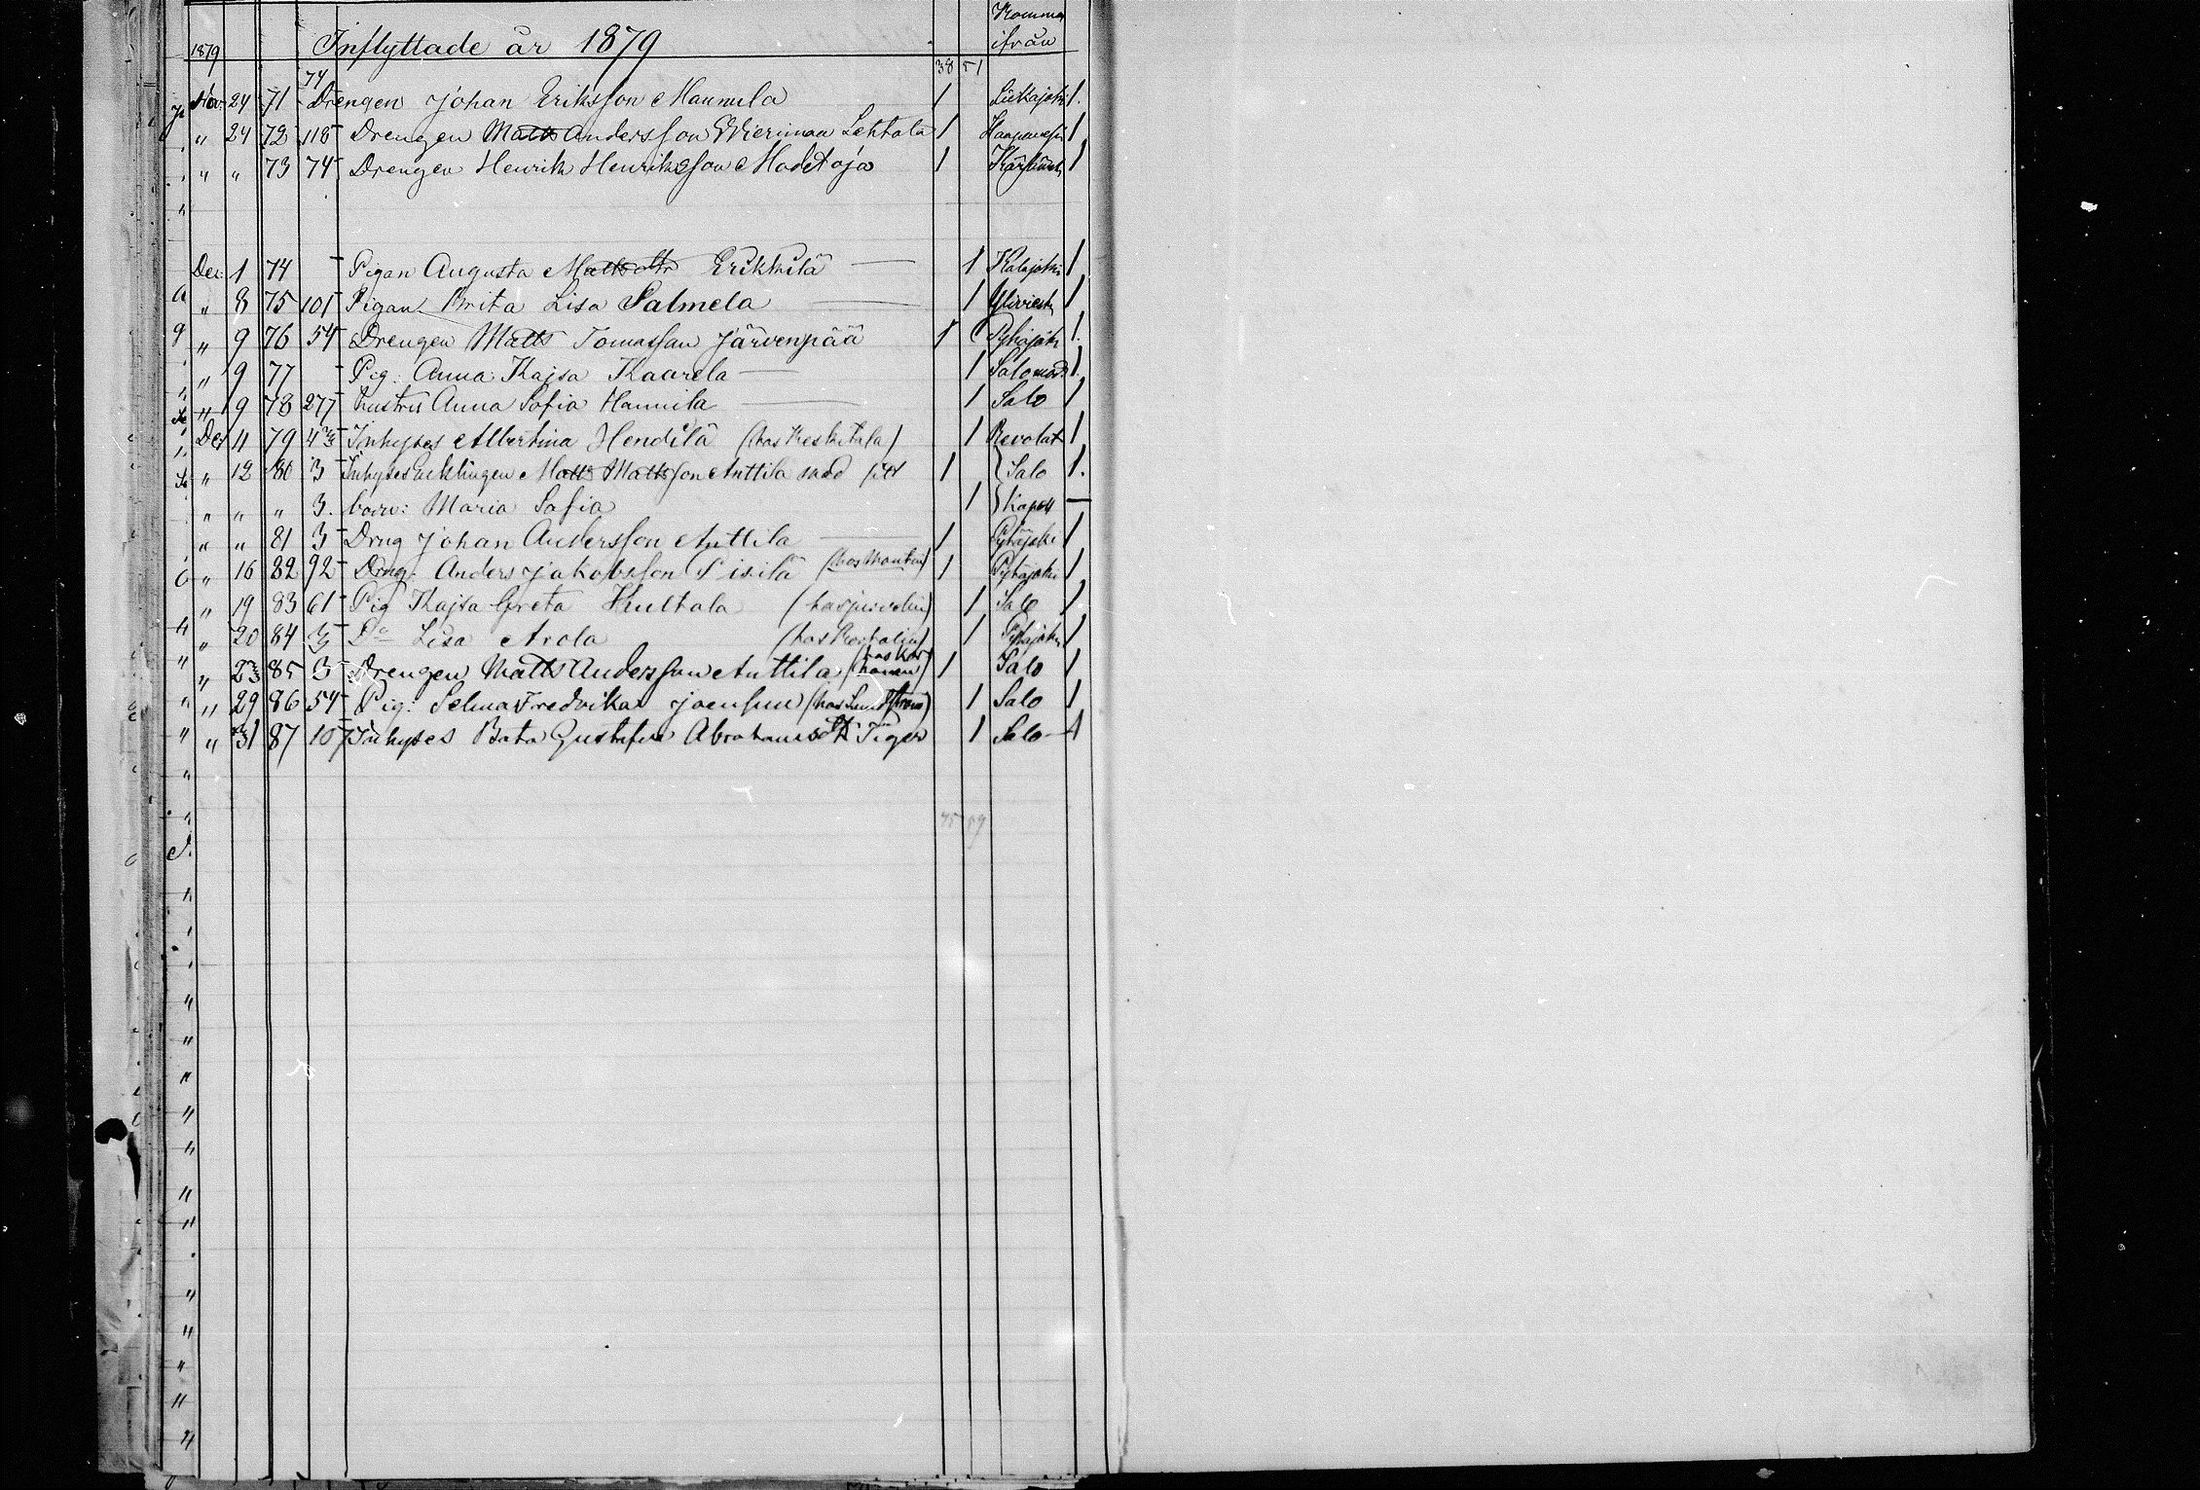 Komma
1879 Inflyttade år 1879 ifrån
38 51
Nov. 24 71 74 Drengen Johan Eriksson Mannila 1 Siikajoki 1.
" 24 72 118 Drengen Matts Andersson Wierimaa Lehtola 1 Haapavesi 1
" " 73 74 Drengen Henrik Henriksson Madetoja 1 Kärsämäki 1
Dec. 1 74 – Pigan Augusta Mattsdtr Erikkilä — 1 Kalajoki 1
" 8 75 101 Pigan Brita Lisa Salmela — 1 Ylivieska 1
" 9 76 54 Drengen Matts Tomasson Järvenpää 1 Pyhäjoki 1.
" 9 77 – Pig: Anna Kajsa Kaarela — 1 Salo 1.
" 9 78 277 Hustru Anna Sofia Hannila — 1 Salo 1
Dec 11 79 Inhyses Albertina Hendilä (hos Keskitala) 1 Revolat 1
" 12 80 3 Inhyses Matts Mattsson Anttila med sitt 1 } Salo 1.
" " " 3. barn: Maria Sofia 1 } kapell —
" " 81 3 Drng Johan Andersson Anttila 1 Pyhäjoki 1
" 16 82 92 Drng: Anders Jakobsson Pisilä 1 Pyhäjoki 1
" 19 83 61 Pig Kajsa Greta Huttala 1 Salo 1
" 20 84 Do Lisa Arola 1 Pyhäjoki 1
" 23 85 3 Drengen Matts Andersson Anttila 1 Salo 1
" 29 86 54 Pig: Selma Fredrika Joensuu (hos Sundström) 1 Salo 1
" 31 87 107 Inhyses Beata Gustafva Abrahamsdtr Tiger 1 Salo 1
75 59